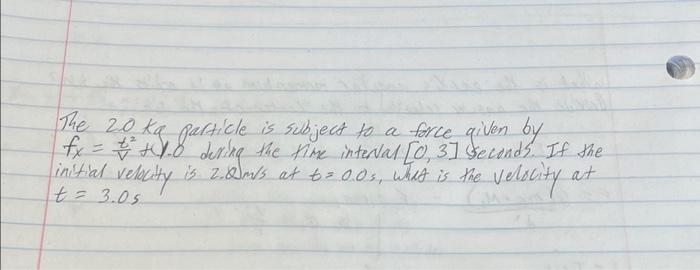 The 2.0 kg particle is subject to a force given by
fx = t²/V + 1.0 during the time interval [0, 3] seconds. If the
initial velocity is 2.0 m/s at t = 0.0s, what is the velocity at
t = 3.0s